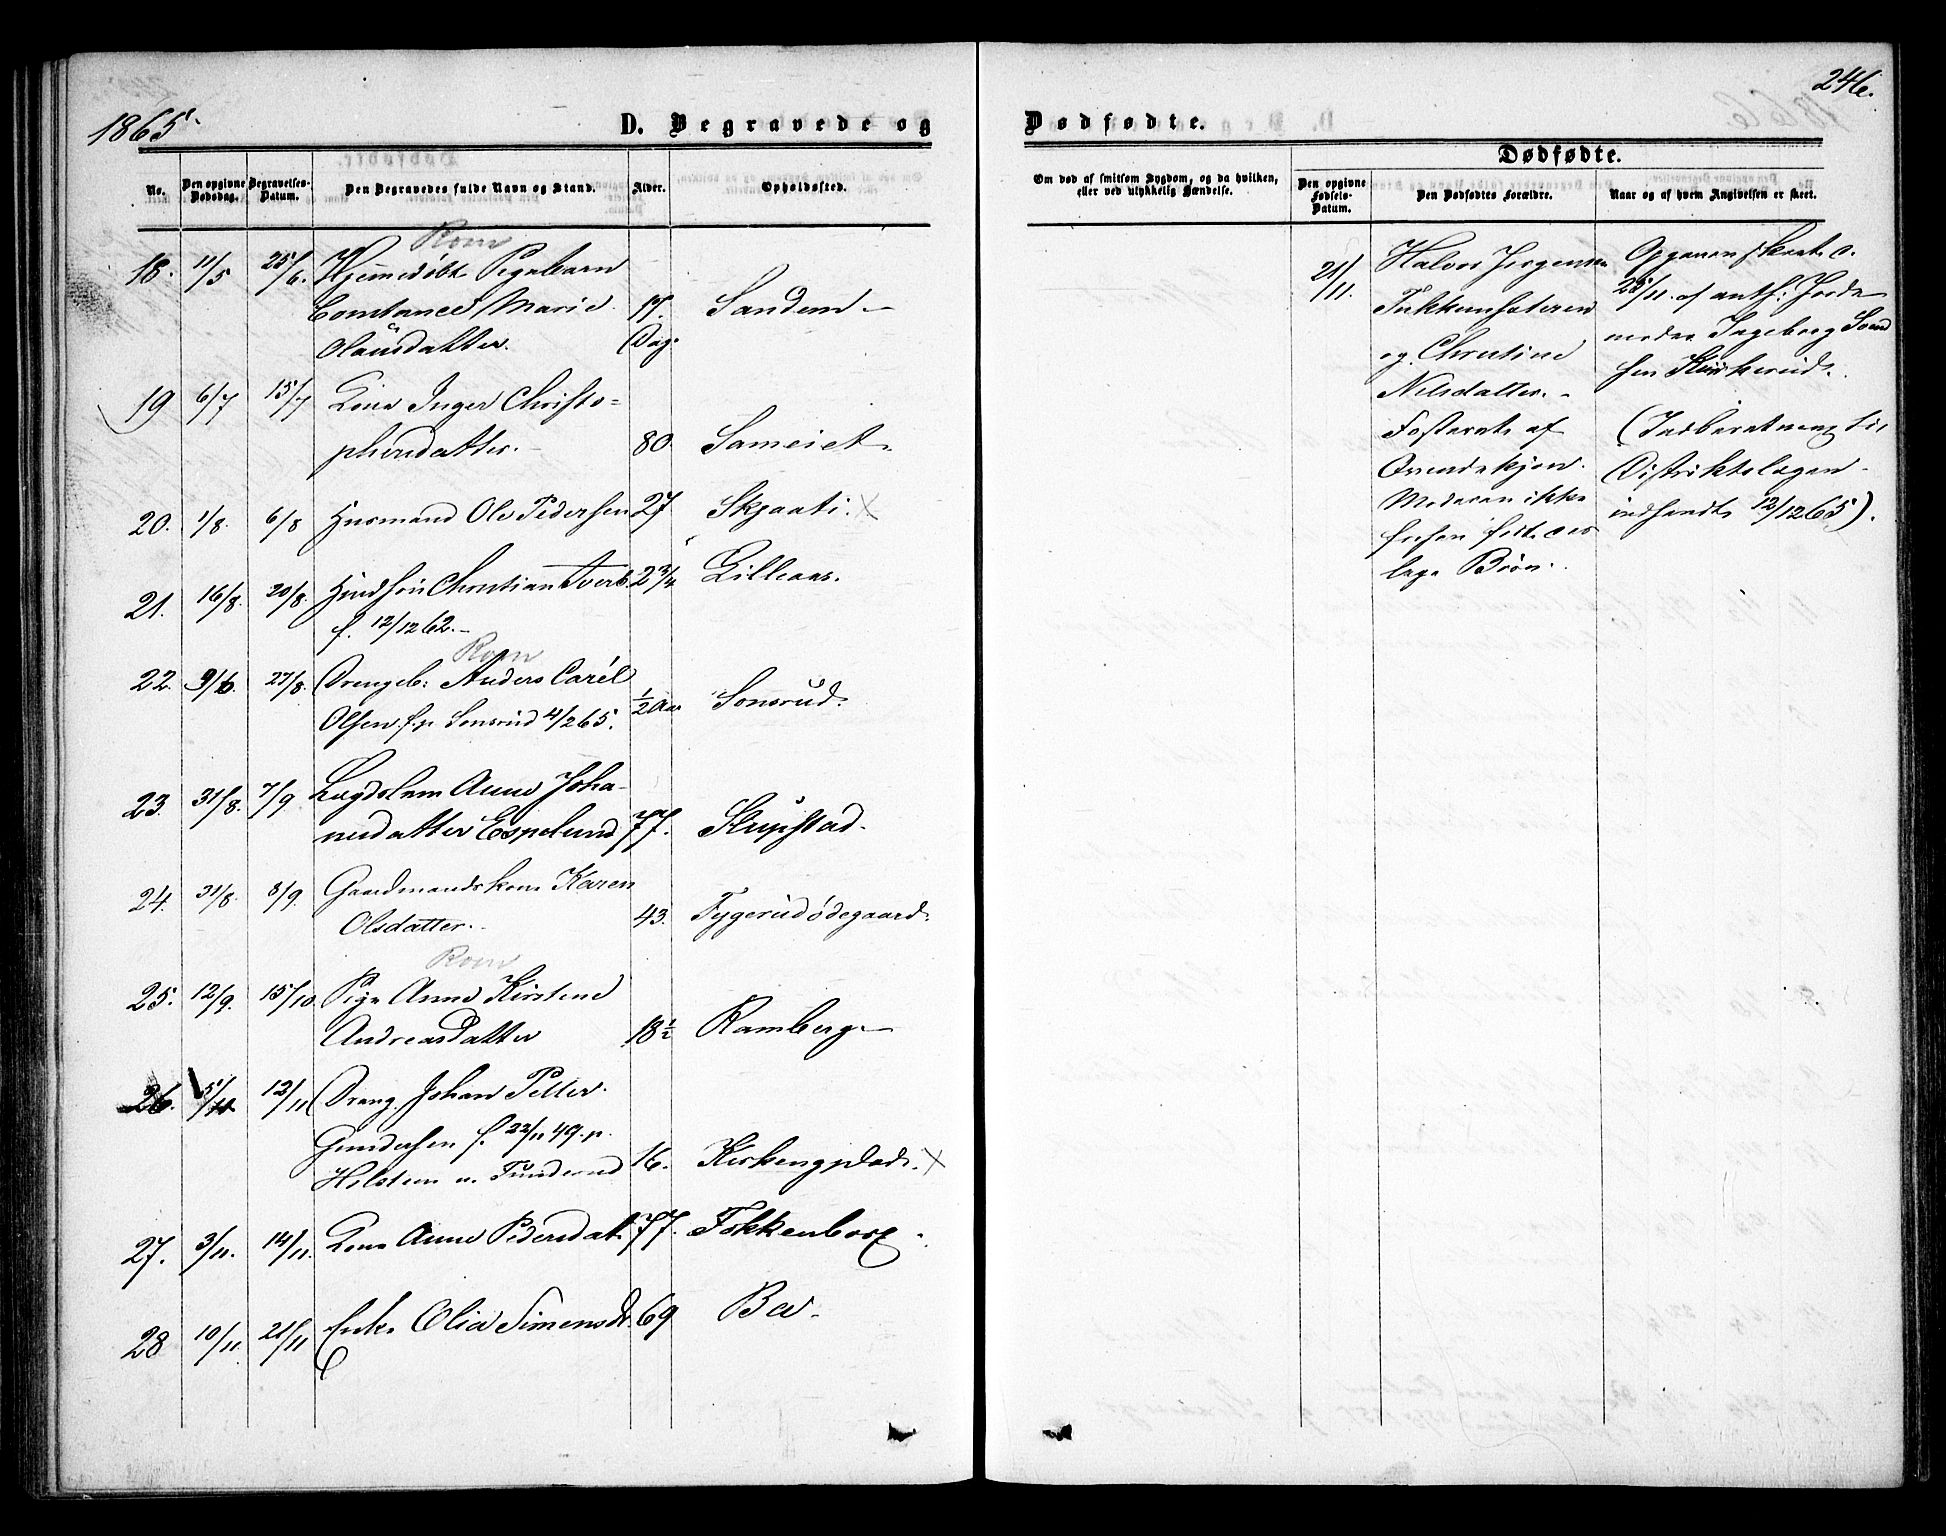 1865
246.
D. Begravede og Dødfødte.
Dødfødte.
No.
Den opgivne Dødsdag.
Begravelses-Datum.
Den Begravedes fulde Navn og Stand.
Alder.
Opholdssted.
Om død af smitsom Sygdom, og da hvilken, eller ved ulykkelig Hændelse.
Den opgivne Fødsels-Datum.
Den Dødfødtes Forældre.
Naar og af hvem Angivelsen er skeet.
Rom
18. 11/5 25/6. Hjemmedøbt Pigebarn
Constance Marie 17. Sandem
Olausdatter. Dag.
19 6/7 15/7 Kone Inger Christo-
phersdatter. 80. Sameiet
20. 1/8. 6/8 Husmand Ole Pedersen 27 Skjaati. X
21. 16/8. 20/8. Christian 2 3/4 Lilleaas.
f. 12/12 62.
Rom
22. 9/6. 27/8. Drengeb: Anders Carél
Olsen f. p. Sonsrud 4/2 65. 1/2 Aar Sonsrud.
23. 31/8. 7/9. Lægdslem Anne Joha-
nnesdatter Espelund 77. Slupstad.
24. 31/8. 8/9. Gaardmandskone Karen
Olsdatter. 43. Tygerudødegaard.
Rom
25. 12/9. 15/10. Pige Anne Kirstine
Andreasdatter 18 1/2 Ramberg
26. 5/11 12/11 Dreng Johan Petter
Gundersen f. 22/11 49. p.
Holstein u. 16. Kirkengplads. X
27. 3/11. 14/11. Kone Anne Pedersdat. 77. Fokkenborg
28 10/11. 21/11 Enke Olia Simensdt. 69 Bø.
21/11. Halvor Jørgensen
og Christine
Nilsdatter.
Fosteret af
Qvindekjøn.
Moderen ikke
før født død-
lage Børn.
Opgaven skeet d.
28/11. af anth: Jorde-
moder Ingeborg
sen Kirkerud.
(Indberetning til
Distriktslægen
indsendt 12/12 65).